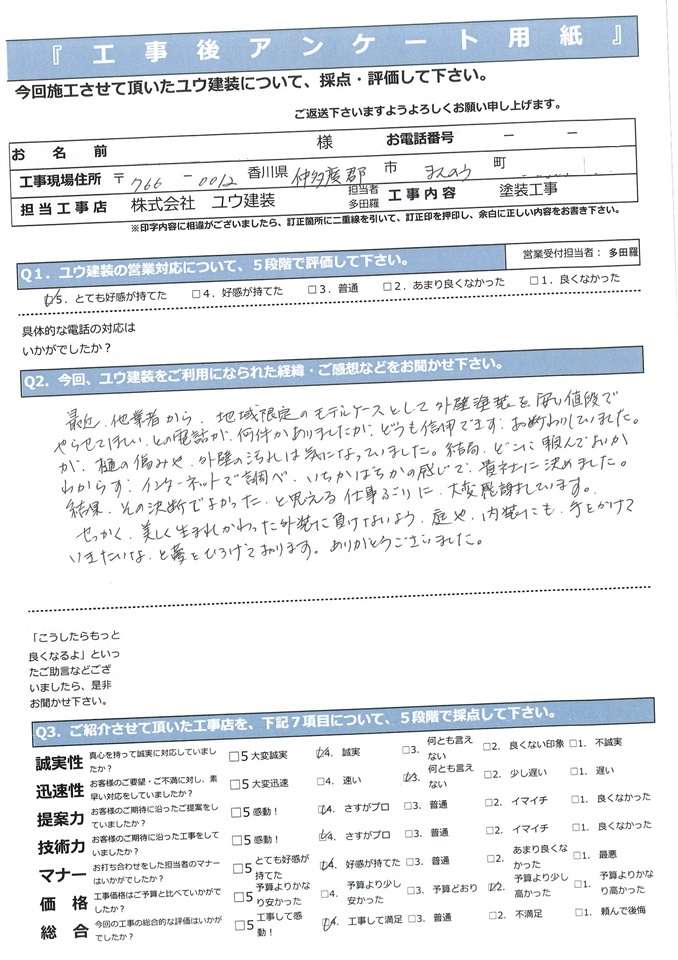 『工事後アンケート用紙』
今回施工させて頂いたユウ建装について、採点・評価して下さい。
ご返送下さいますようよろしくお願い申し上げます。
お名前 様 お電話番号 － －
工事現場住所 〒766－0012 香川県 仲多度郡 市 まんのう 町
担当工事店 株式会社 ユウ建装 担当者 多田羅 工事内容 塗装工事
※印字内容に相違がございましたら、訂正箇所に二重線を引いて、訂正印を押印し、余白に正しい内容をお書き下さい。
Q1．ユウ建装の営業対応について、５段階で評価して下さい。 営業受付担当者：多田羅
☑5．とても好感が持てた □4．好感が持てた □3．普通 □2．あまり良くなかった □1．良くなかった
具体的な電話の対応は
いかがでしたか？
Q2．今回、ユウ建装をご利用になられた経緯・ご感想などをお聞かせ下さい。
最近、他業者から、地域限定のモデルケースとして外壁塗装を安い値段で
やらせてほしい、との電話が、何件かありましたが、どうも信用できず、お断わりしていました。
が、樋の傷みや、外壁の汚れは気になっていました。結局、どこに頼んでよいか
わからず、インターネットで調べ、いちかばちかの感じで、貴社に決めました。
結果、その決断でよかった、と思える仕事ぶりに、大変感謝しています。
せっかく、美しく生まれかわった外装に負けないよう、庭や、内装にも、手をかけて
いきたいな、と夢をひろげております。ありがとうございました。
「こうしたらもっと
良くなるよ」といっ
たご助言などござ
いましたら、是非
お聞かせ下さい。
Q3．ご紹介させて頂いた工事店を、下記７項目について、５段階で採点して下さい。
誠実性 真心を持って誠実に対応していましたか？ □5大変誠実 ☑4．誠実 □3．何とも言えない □2．良くない印象 □1．不誠実
迅速性 お客様のご要望・ご不満に対し、素早い対応をしていましたか？ □5大変迅速 □4．速い ☑3．何とも言えない □2．少し遅い □1．遅い
提案力 お客様のご期待に沿ったご提案をしていましたか？ □5感動！ ☑4．さすがプロ □3．普通 □2．イマイチ □1．良くなかった
技術力 お客様のご期待に沿った工事をしていましたか？ □5感動！ ☑4．さすがプロ □3．普通 □2．イマイチ □1．良くなかった
マナー お打ち合わせをした担当者のマナーはいかがでしたか？ □5とても好感が持てた ☑4．好感が持てた □3．普通 □2．あまり良くなかった □1．最悪
価格 工事価格はご予算と比べていかがでしたか？ □5予算よりかなり安かった □4．予算より少し安かった □3．予算どおり ☑2．予算より少し高かった □1．予算よりかなり高かった
総合 今回の工事の総合的な評価はいかがでしたか？ □5工事して感動！ ☑4．工事して満足 □3．普通 □2．不満足 □1．頼んで後悔